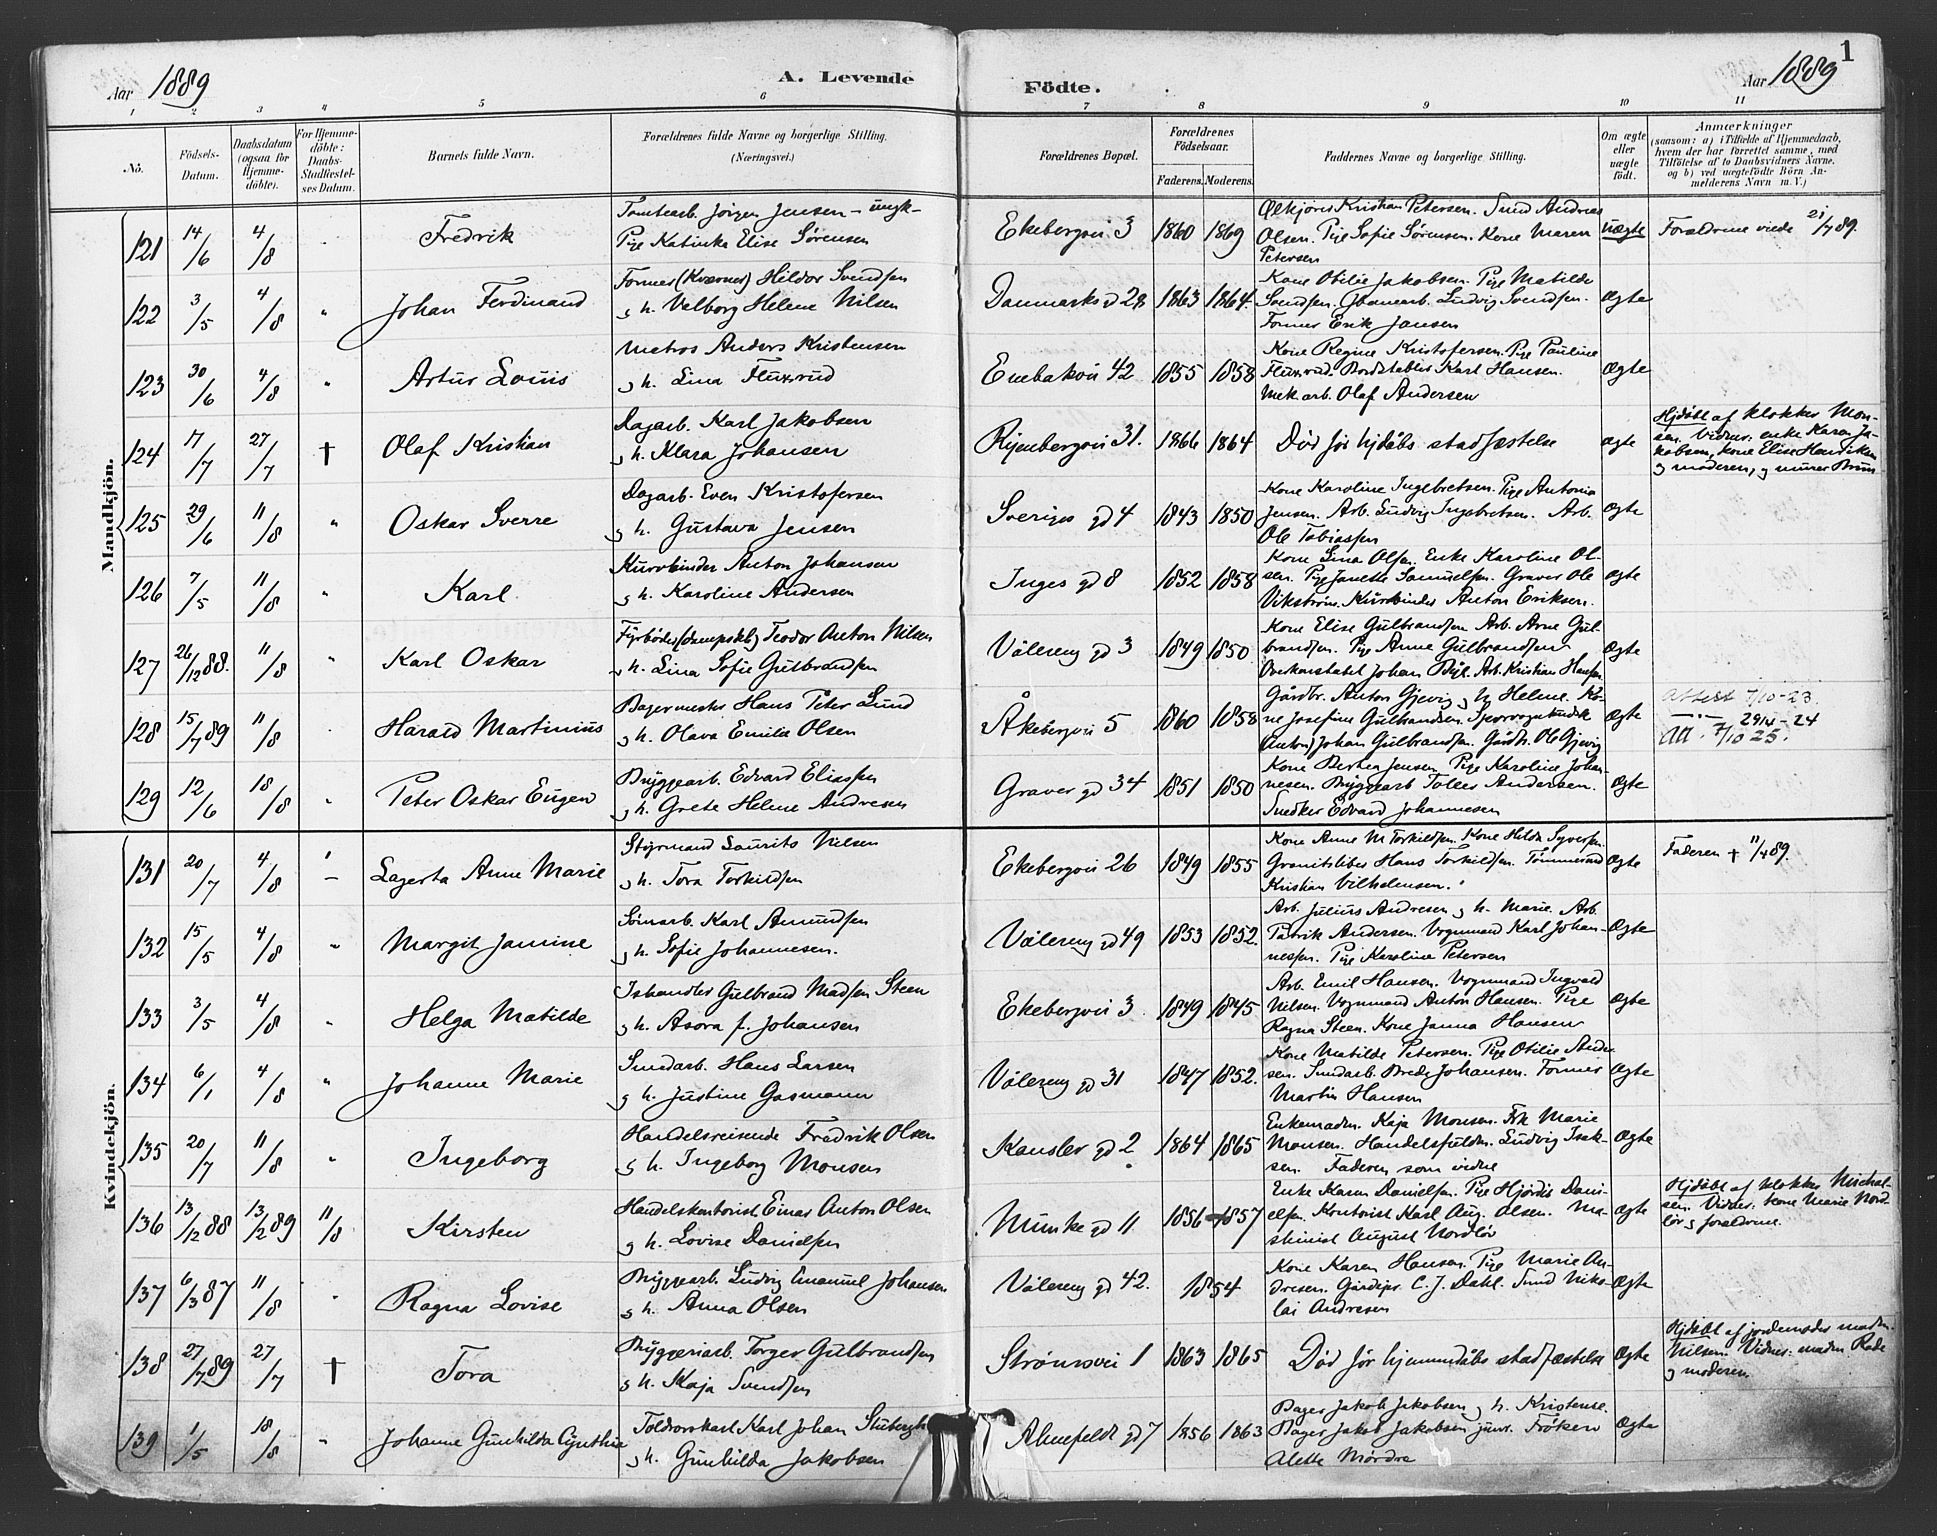 1
Aar 1889 A. Levende Födte. Aar 1889
1 2 3 4 5 6 7 8 9 10 11
No. Födsels-Datum. Daabsdatum (ogsaa for Hjemmedöbte). For Hjemmedöbte: Daabs-Stadfæstelses Datum. Barnets fulde Navn. Forældrenes fulde Navne og borgerlige Stilling. (Næringsvei.) Forældrenes Bopæl. Forældrenes Födselsaar. Faderens. Moderens. Faddernes Navne og borgerlige Stilling. Om ægte eller uægte födt. Anmærkninger (saasom: a) i Tilfælde af Hjemmedaab, hvem der har forrettet samme, med Tilföielse af to Daabsvidners Navne, og b) ved uægtefödte Börn Anmelderens Navn m. V.)
Mandkjön.
121 14/6 4/8 Fredrik Tomtearb. Jörgen Jensen - ungk- Ekebergvei 3 1860 1869 Kristian Petersen. Smed Andreas uægte Forældrene viede 21/7 89.
Pige Katinka Elise Sörensen Olsen. Pige Sofie Sörensen. Kone Maren
Petersen
122 3/5 4/8 " Johan Ferdinand Former (Kværner) Hildor Svendsen Danmarks gd 28 1863 1864 Kone Otilie Jakobsen. Pige Matilde ægte
g h. Valborg Helene Nilsen Svendsen. Ludvig Svendsen.
Former Erik Jansen
123 30/6 4/8 " Artur Louis Matros Anders Kristensen Enebakvei 42 1855 1858 Kone Regine Kristofersen. Pige Pauline Ægte
g h. Lina Fluxrud Fluxrud. Karl Hansen.
Mek. arb. Olaf Andersen
124 17/7 27/7 † Olaf Kristian Dagarb. Karl Jakobsen Ryenbergvei 31. 1866 1864 Död för hjdåbs stadfæstelse ægte Hjdöbt af klokker Mon-
g h. Klara Johansen sen. Vidner: enke Karen Ja-
kobsen, kone Elise Henriksen
g moderen, g murer
125 29/6 11/8 " Oskar Sverre Dagarb. Even Kristofersen Sveriges gd 4 1843 1850 Kone Karoline Ingebretsen. Pige Antonia Ægte
g h. Gustava Jensen Jensen. Arb. Ludvig Ingebretsen. Arb.
Ole Tobiassen
126 7/5 11/8 " Karl Kurvbinder Anton Johansen Inges gd 8 1852 1858 Kone Lina Olsen. Enke Karoline Ol- Ægte
g h. Karoline Andersen sen. Pige Janette Samuelsen. Graver Ole
Vikström. Kurvbinder Anton Eriksen.
127 26/12 88. 11/8 " Karl Oskar Fyrböder (dampskib) Teodor Anton Nilsen Vålereng gd 3 1849 1850 Kone Elise Gulbrandsen Arb. Arne Gul- Ægte
g h. Lina Sofie Gulbrandsen brandsen. Pige Anne Gulbrandsen
Overkonstabel Johan. Arb. Kristian Hansen
128 15/7 89 11/8 Harald Martinius Bagermester Hans Peter Lund Åkebergvei 5 1860 1858 Gårdbr. Anton Gjevig g h. Helene. Ko- Ægte Attest 7/10-23.
g h. Olava Emilie Olsen ne Josefine Gulbrandsen. Sporvognskudsk - 29/4-24
(Anton) Johan Gulbrandsen. Gårdbr. Ole Gjevig Att. 7/10 25.
129 12/6 18/8 " Peter Oskar Eugen Bryggearb. Edvard Eliassen Graver gd 34 1851 1850 Kone Berthea Jensen. Pige Karoline Johan- Ægte
g h. Grete Helene Andresen nesen. Bryggearb Andersen.
Snedker Edvard Johannesen
Kvindekjön.
131 20/7 4/8 Lagerta Anne Marie Styrmand Laurits Nilsen Ekebergvei 26 1849 1855 Kone Anne M. Torkildsen. Kone Hilda Syversen. Ægte Faderen † 11/4 89.
g h. Tora Torkildsen Granitsliber Hans Torkildsen. Tömmermand
Kristian Vilhelmsen.
132 15/5 4/8 " Margit Jamine Sömarb. Karl Amundsen Vålereng gd 49 1853 1852. Arb. Julius Andresen g h. Marie. Arb. Ægte
g h. Sofie Johannesen. Patrik Andersen. Vognmand Karl Johan-
nessen. Pige Karoline Petersen
133 3/5 4/8 " Helga Matilde Ishandler Gulbrand Madsen Steen Ekebergvei 3 1849 1845 Arb. Emil Hansen. Vognmand Ingvald Ægte
g h. Asora f. Johansen Nilsen. Vognmand Anton Hansen. Pige
Ragna Steen. Kone Janna Hansen
134 6/1 4/8 " Johanne Marie Smedarb. Hans Larsen Vålereng gd 31 1847 1852. Kone Matilde Petersen. Pige Otilie Ander- Ægte
g h. Justine Gasmann sen. Smedarb. Brede Johansen. Former
Martin Hansen
135 20/7 11/8 " Ingeborg Handelsreisende Fredrik Olsen Kansler gd 2 1864 1865 Enkemadam Kaja Monsen. Frk Marie Ægte
g h. Ingeborg Monsen Monsen. Handelsfuldm. Ludvig Isak-
sen. Faderen som vidne
136 13/12 88 13/2 89 11/8 Kirsten Handelskontorist Einar Anton Olsen Munke gd 11 1856 1857 Enke Karen Danielsen. Pige Hjördis Dani- Ægte Hjdöbt af klokker Michal-
g h. Lovise Danielsen elsen. Kontorist Karl Aug. Olsen. Ma- sen. Vidner: kone Marie Nord-
skinist August Nordlör lör g forældrene.
137 6/3 87 11/8 " Ragna Lovise Bryggearb. Ludvig Emanuel Johansen Vålereng gd 42. 1854 Kone Karen Hansen. Pige Marie An- Ægte
g h. Anna Olsen dresen. Gårdeier C. J. Dahl. Smed Niko-
lai Andresen
138 27/7 89 27/7 † Tora Bryggeriarb. Torger Gulbrandsen Strömsvei 1 1863 1865 Död för hjemmedåbs stadfæstelse Ægte Hjdöbt af jordemoder madm.
g h. Kaja Svendsen Nilsen. Vidner: madm. Rode
g moderen
139 1/5 18/8 " Johanne Gunhilda Cynthia Toldvovkarl Karl Johan Stubergh Ahnefeldt gd 7 1856 1863 Bager Jakob Jakobsen g h. Kristense. Ægte
g h. Gunhilda Jakobsen Bager Jakob Jakobsen junr. Fröken
Alette Mördre